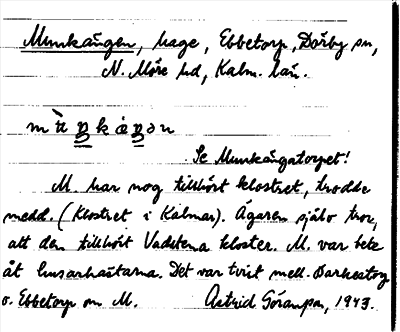 Munkängen, hage, Ebbetorp, Dörby sn,
N. Möre hd, Kalm. län.
m ù ŋ k ä́ ŋ ə n
Se Munkängatorpet!
M. har nog tillhört klostret, trodde
medd. (Klostret i Kalmar). Ägaren själv tror,
att den tillhört Vadstena kloster. M. var bete
åt husarhästarna. Det var tvist mell. Barkestorp
o. Ebbetorp om M. Astrid Göransson, 1943.